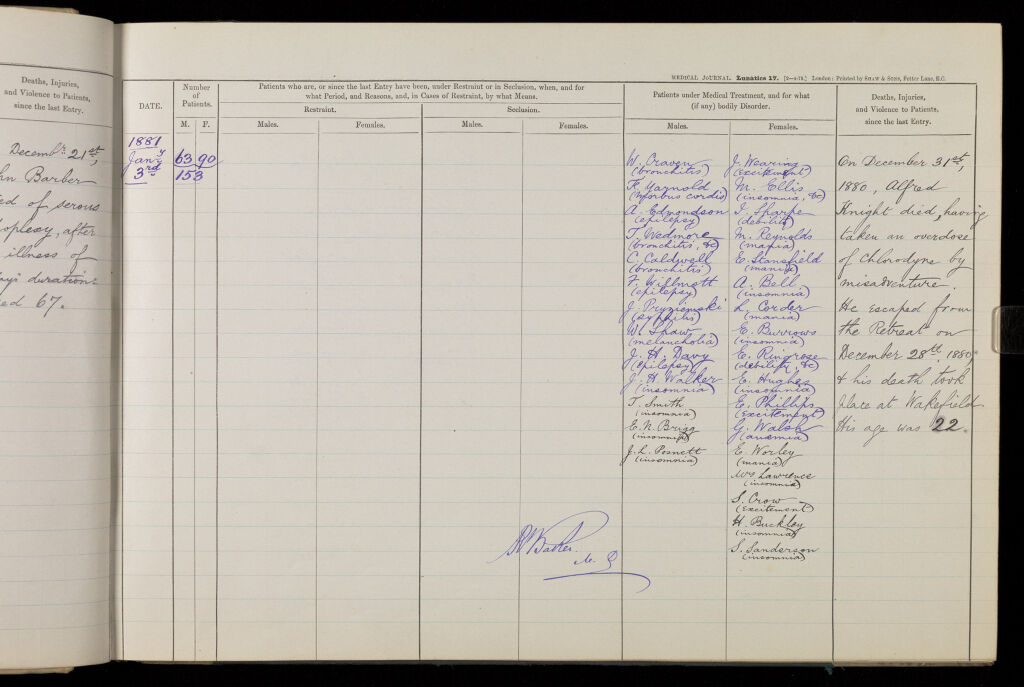 Deaths, Injuries,
and Violence to Patients,
since the last Entry.
Decembr. 21st,
hn Barber
ed of serous
oplexy, after
illness of
ays duration.
ed 67.
MEDICAL JOURNAL Lunatics 17. [2—4-78.] London: Printed by SHAW & SONS, Fetter Lane, E.C.
DATE.
Number
of
Patients.
M. F.
Patients who are, or since the last Entry have been, under Restraint or in Seclusion, when, and for
what Period, and Reasons, and, in Cases of Restraint, by what Means.
Restraint.
Males.
Females.
Seclusion.
Males.
Females.
Patients under Medical Treatment, and for what
(if any) bodily Disorder.
Males.
Females.
Deaths, Injuries,
and Violence to Patients,
since the last Entry.
1881
Jany
3rd
63 90
153
W. Craven
(bronchitis)
F. Yarnold
(morbus cordis)
A. Edmondson
(epilepsy)
T. Wedmore
(bronchitis, &c)
C. Caldwell
(bronchitis)
F. Willmott
(epilepsy)
J. Pryziemski
(syphilis)
W. Shaw
(melancholia)
J. H. Davy
(epilepsy)
J. H. Walker
(insomnia)
T. Smith
(insomnia)
E. N. Brigg
(insomnia)
J. L. Posnett
(insomnia)
J. Wearing
(excitement)
M. Ellis
(insomnia, &c)
I. Sharpe
(debility)
M. Reynolds
(mania)
E. Stansfield
(mania)
A. Bell
(insomnia)
L. Corder
(mania)
E. Burrows
(insomnia)
E. Ringrose
(debility, &c)
E. Hughes
(insomnia)
E. Phillips
(excitement)
G. Walsh
(anæmia)
E. Worley
(mania)
Mrs Lawrence
(insomnia)
S. Crow
(excitement)
H. Buckley
(insomnia)
S. Sanderson
(insomnia)
On December 31st,
1880, Alfred
Knight died, having
taken an overdose
of Chlorodyne by
misadventure.
He escaped from
the Retreat on
December 28th, 1880,
& his death took
place at Wakefield.
His age was 22.
Baker